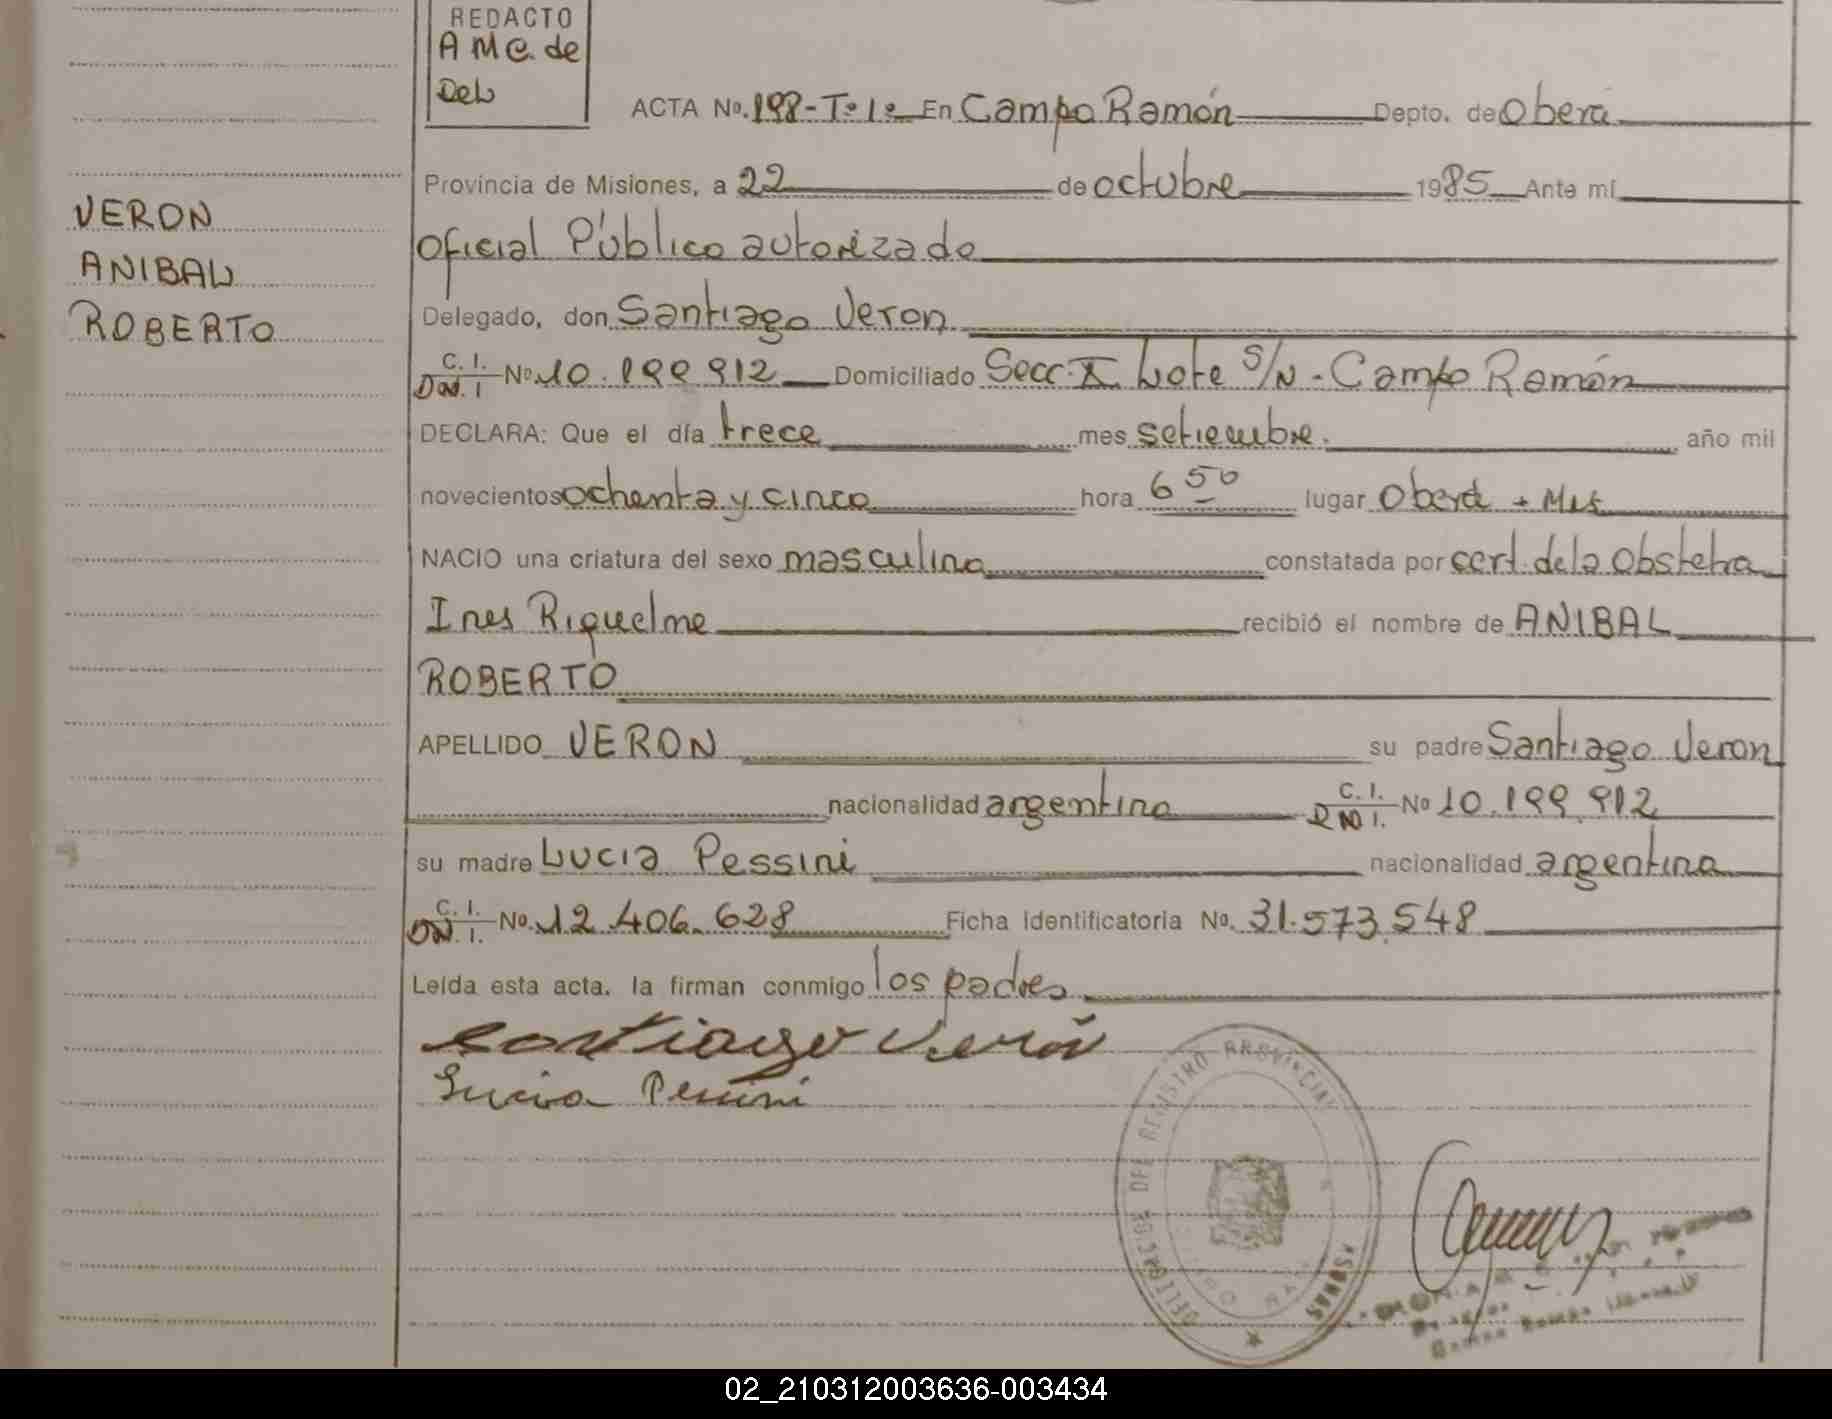 REDACTO
A M C. de
Del
ACTA No. 198-Tº1º En Campo Ramón Depto. de Oberá
Provincia de Misiones, a 22 de octubre 1985 Ante mí
Oficial Público autorizado
VERON
ANIBAL
ROBERTO
Delegado, don Santiago Veron
C. I.
D.N.I. No 10.199.912 Domiciliado Secc. X Lote S/N - Campo Ramón
DECLARA: Que el día trece mes setiembre. año mil
novecientos ochenta y cinco hora 6 50 lugar Oberá - Mis
NACIO una criatura del sexo masculino constatada por cert. de la Obstetra
Ines Riquelme recibió el nombre de ANIBAL
ROBERTO
APELLIDO VERON su padre Santiago Veron
nacionalidad argentino C. I.
D.N.I. No 10.199.912
su madre Lucia Pessini nacionalidad argentina
C. I.
D.N.I. No. 12.406.628 Ficha Identificatoria No. 31.573.548
Leída esta acta. la firman conmigo los padres
Santiago Verón
Lucia Pessini
DELEGACION DEL REGISTRO PROVINCIAL
02_210312003636-003434